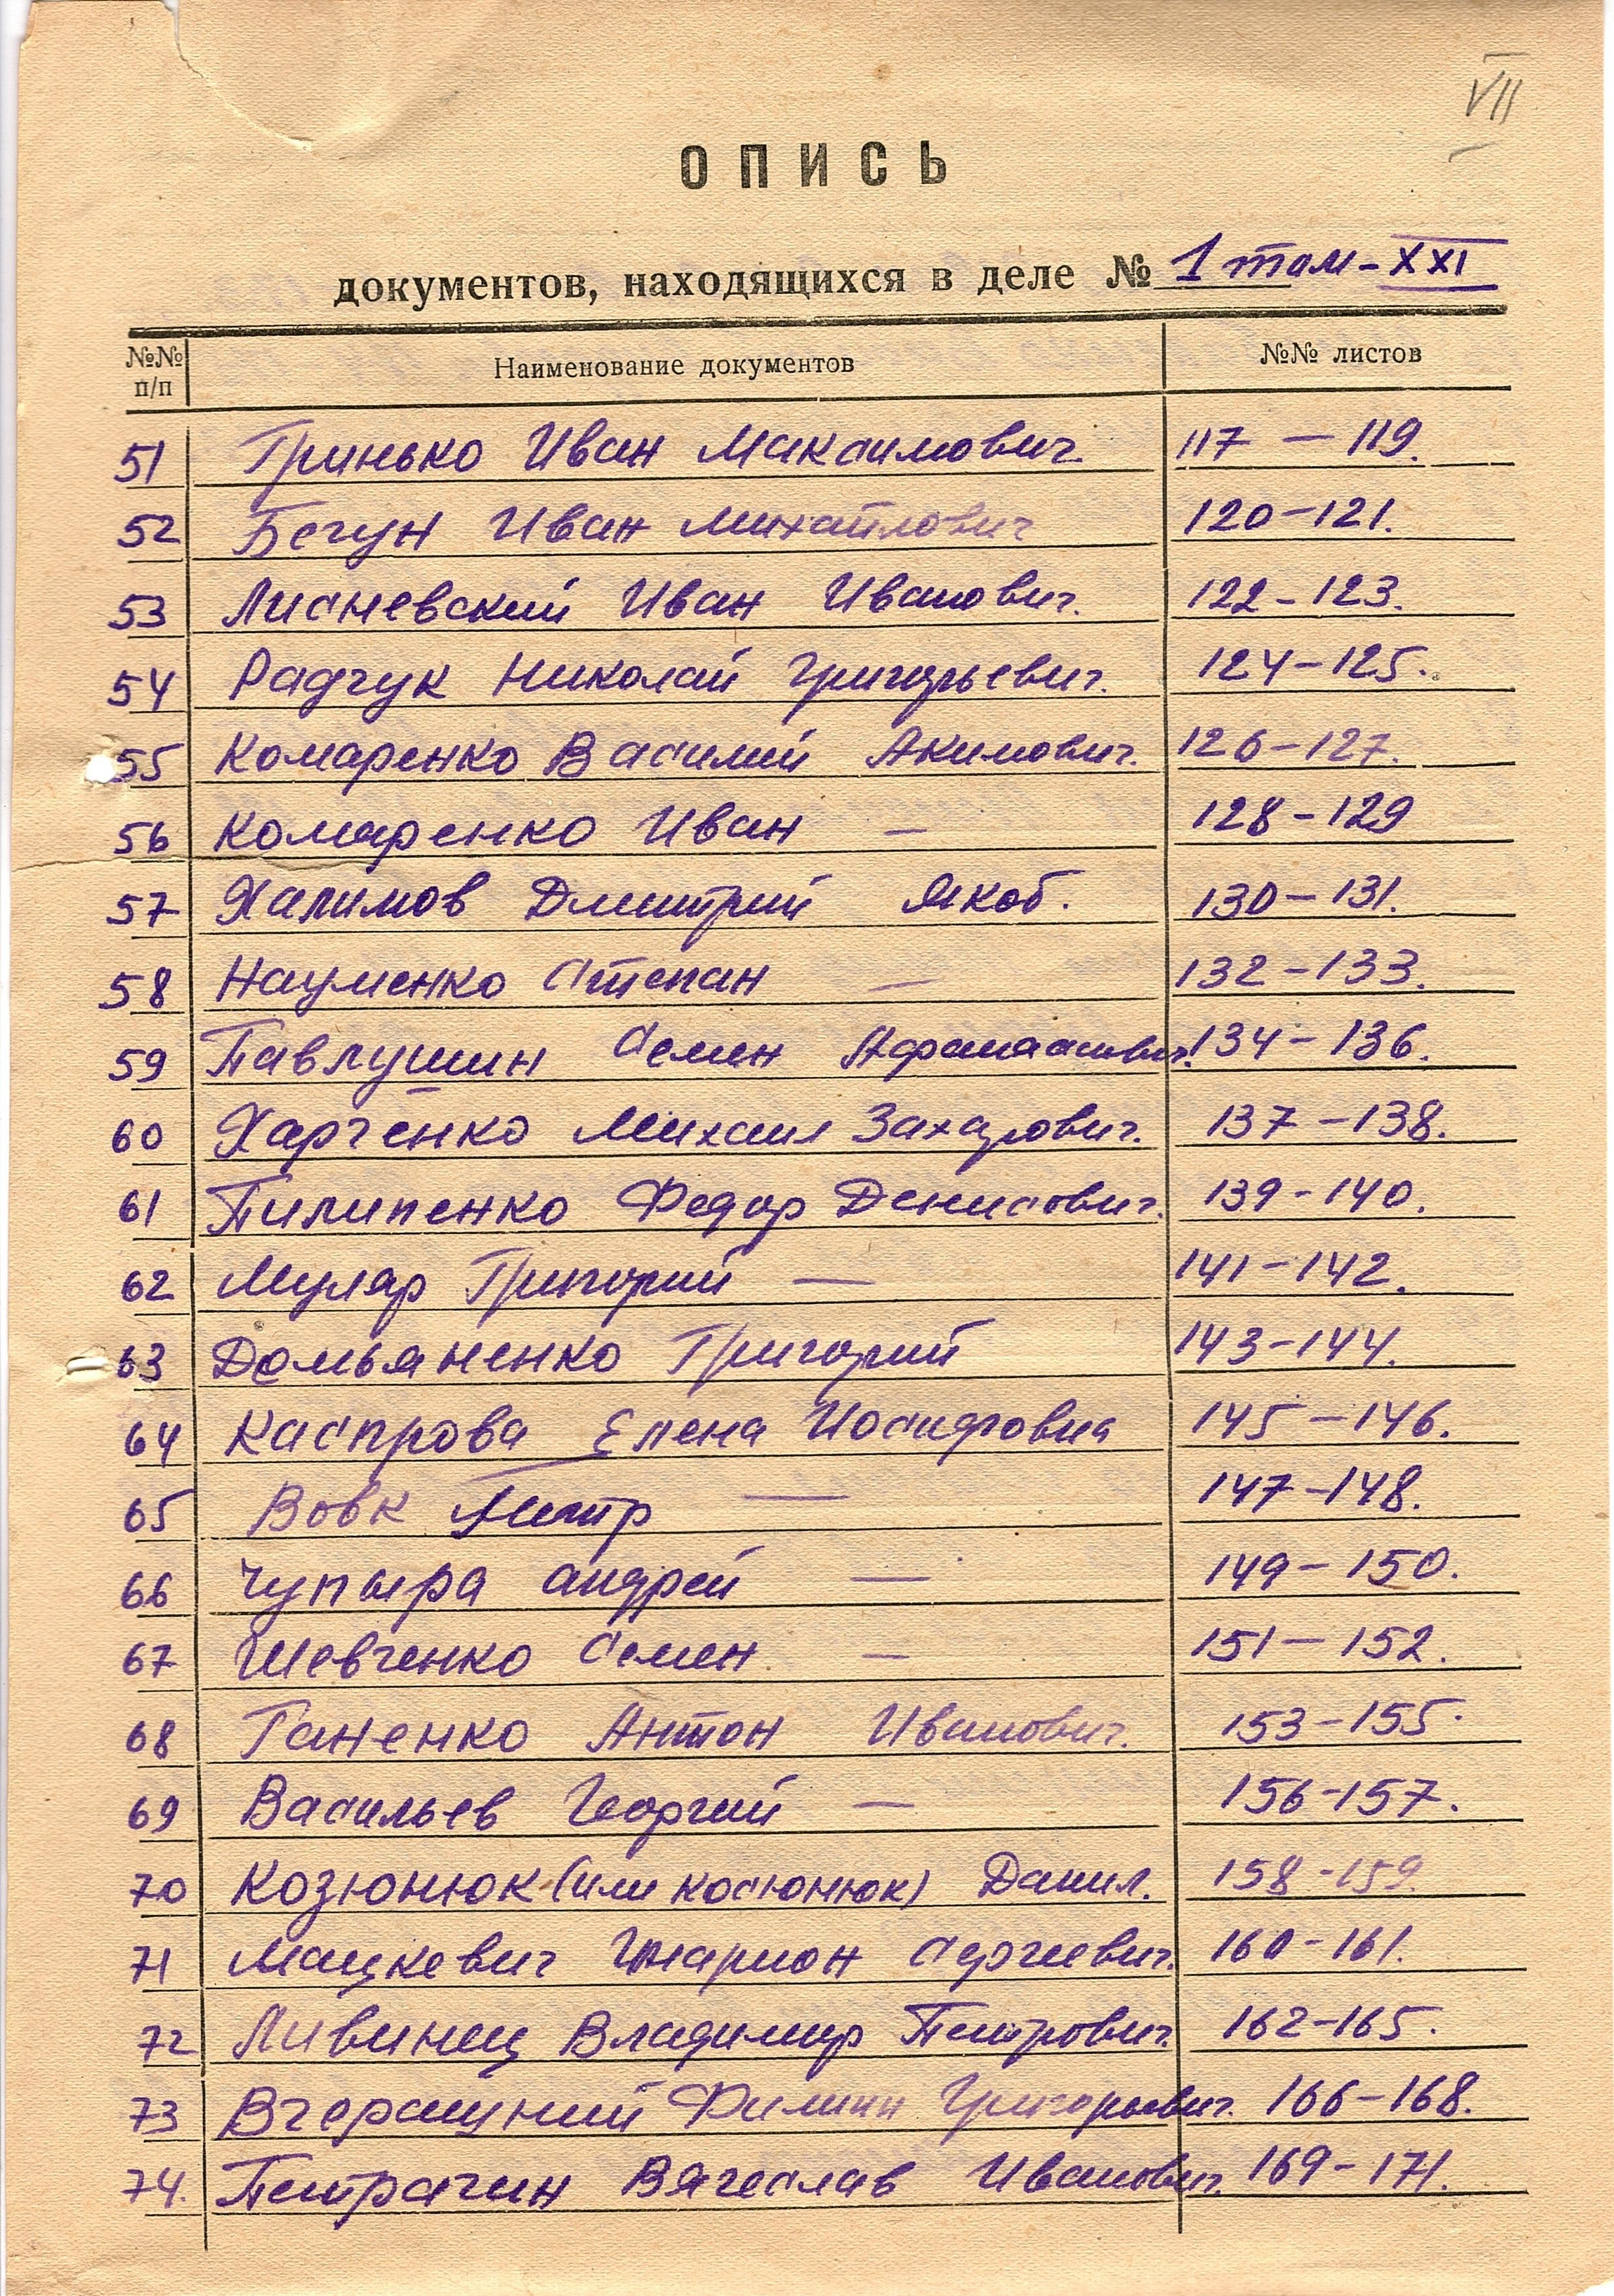 VII
ОПИСЬ
документов, находящихся в деле № 1 том - XXI
№№ п/п Наименование документов №№ листов
51 Гринько Иван Максимович. 117 — 119.
52 Бегун Иван Михайлович 120 — 121.
53 Лисневский Иван Иванович. 122 - 123.
54 Радчук Николай Григорьевич. 124 — 125.
55 Комаренко Василий Акимович. 126 - 127.
56 Комаренко Иван — 128 - 129
57 Халимов Дмитрий Якоб. 130 — 131.
58 Науменко Степан — 132 - 133.
59 Павлушин Семен Афанасиевич. 134 - 136.
60 Харченко Михаил Захарович. 137 - 138.
61 Пилипенко Федор Денисович. 139 - 140.
62 Муляр Григорий — 141 - 142.
63 Домьяненко Григорий 143 - 144.
64 Каспрова Елена Иосифовна 145 — 146.
65 Вовк Петр — 147 - 148.
66 Чупыра Андрей — 149 - 150.
67 Шевченко Семен — 151 — 152.
68 Ганенко Антон Иванович. 153 - 155.
69 Васильев Георгий — 156 - 157.
70 Козюнюк (или Косюнюк) Данил. 158 - 159.
71 Мацкевич Иларион Сергеевич. 160 - 161.
72 Ливинец Владимир Петрович. 162 - 165.
73 Вчерашний Филипп Григорьевич. 166 - 168.
74. Петрачин Вячеслав Иванович. 169 - 171.